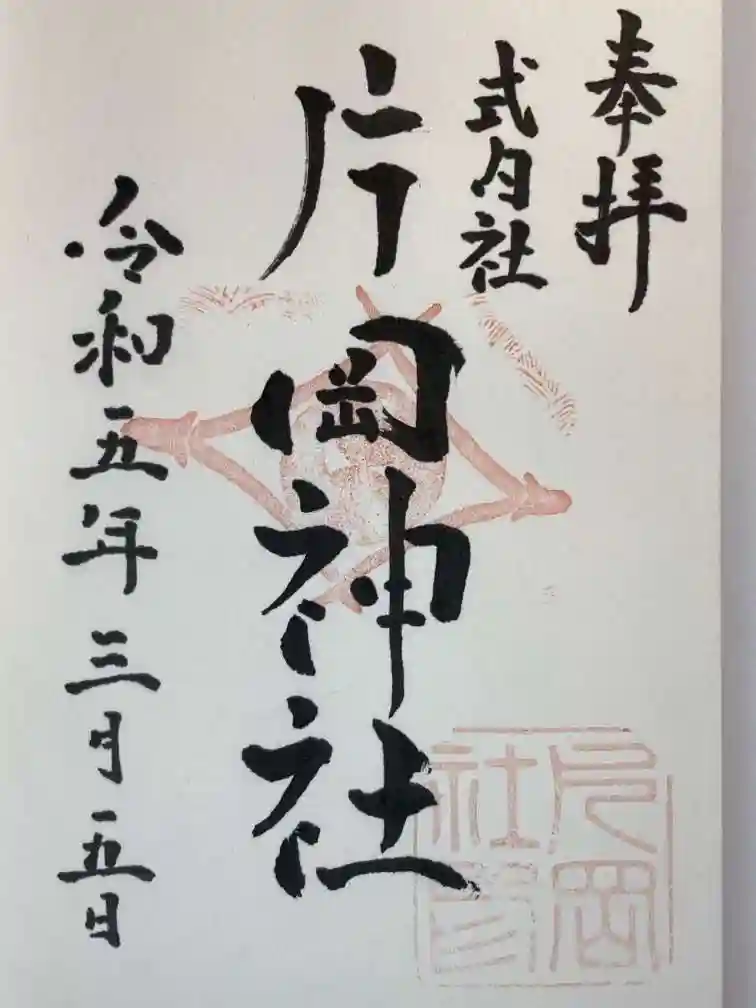 奉拝
式内社
片岡神社
令和五年三月五日
片岡
社務